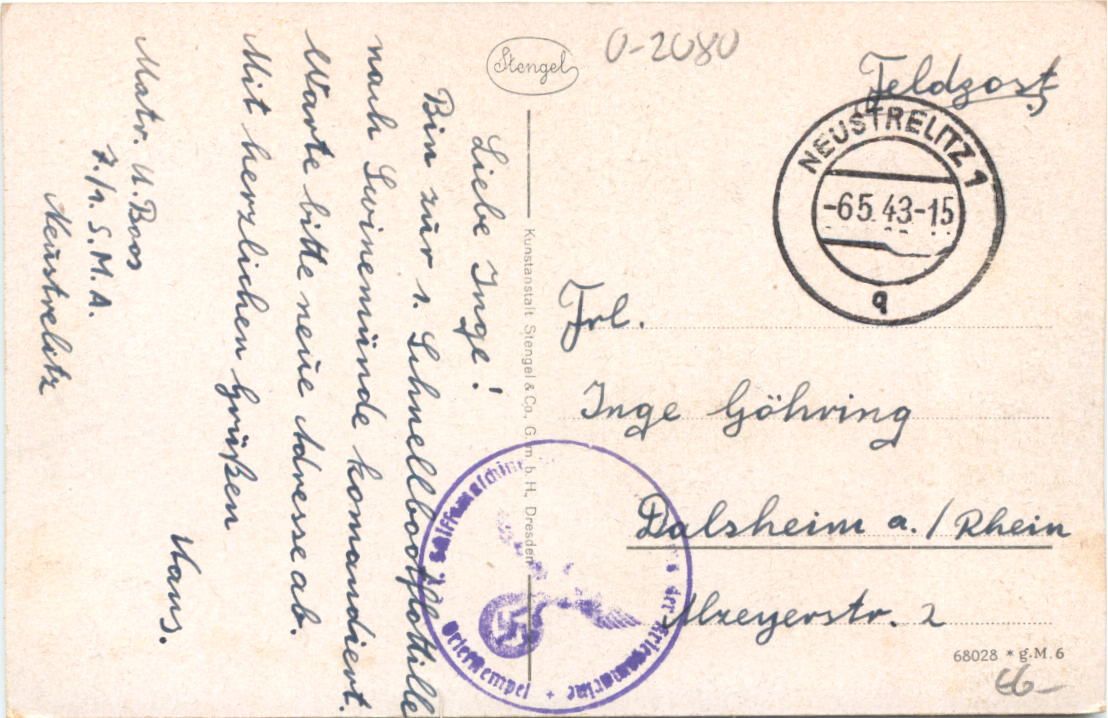 Stengel
0-2080
Feldpost
NEUSTRELITZ 1
-6.5.43-15
q
Liebe Inge!
Bin zur 1. Schnellbootflottille
nach Swinemünde komandiert.
Warte bitte neue Adresse ab.
Mit herzlichen Grüßen
Hans.
Matr. H. Boos
7./1. S.M.A.
Neustrelitz
Kunstanstalt Stengel & Co., G.m.b.H., Dresden
Frl.
Inge Göhring
Dalsheim a./Rhein
Alzeyerstr. 2
der Kriegsmarine
Briefstempel
68028 * g.M.6